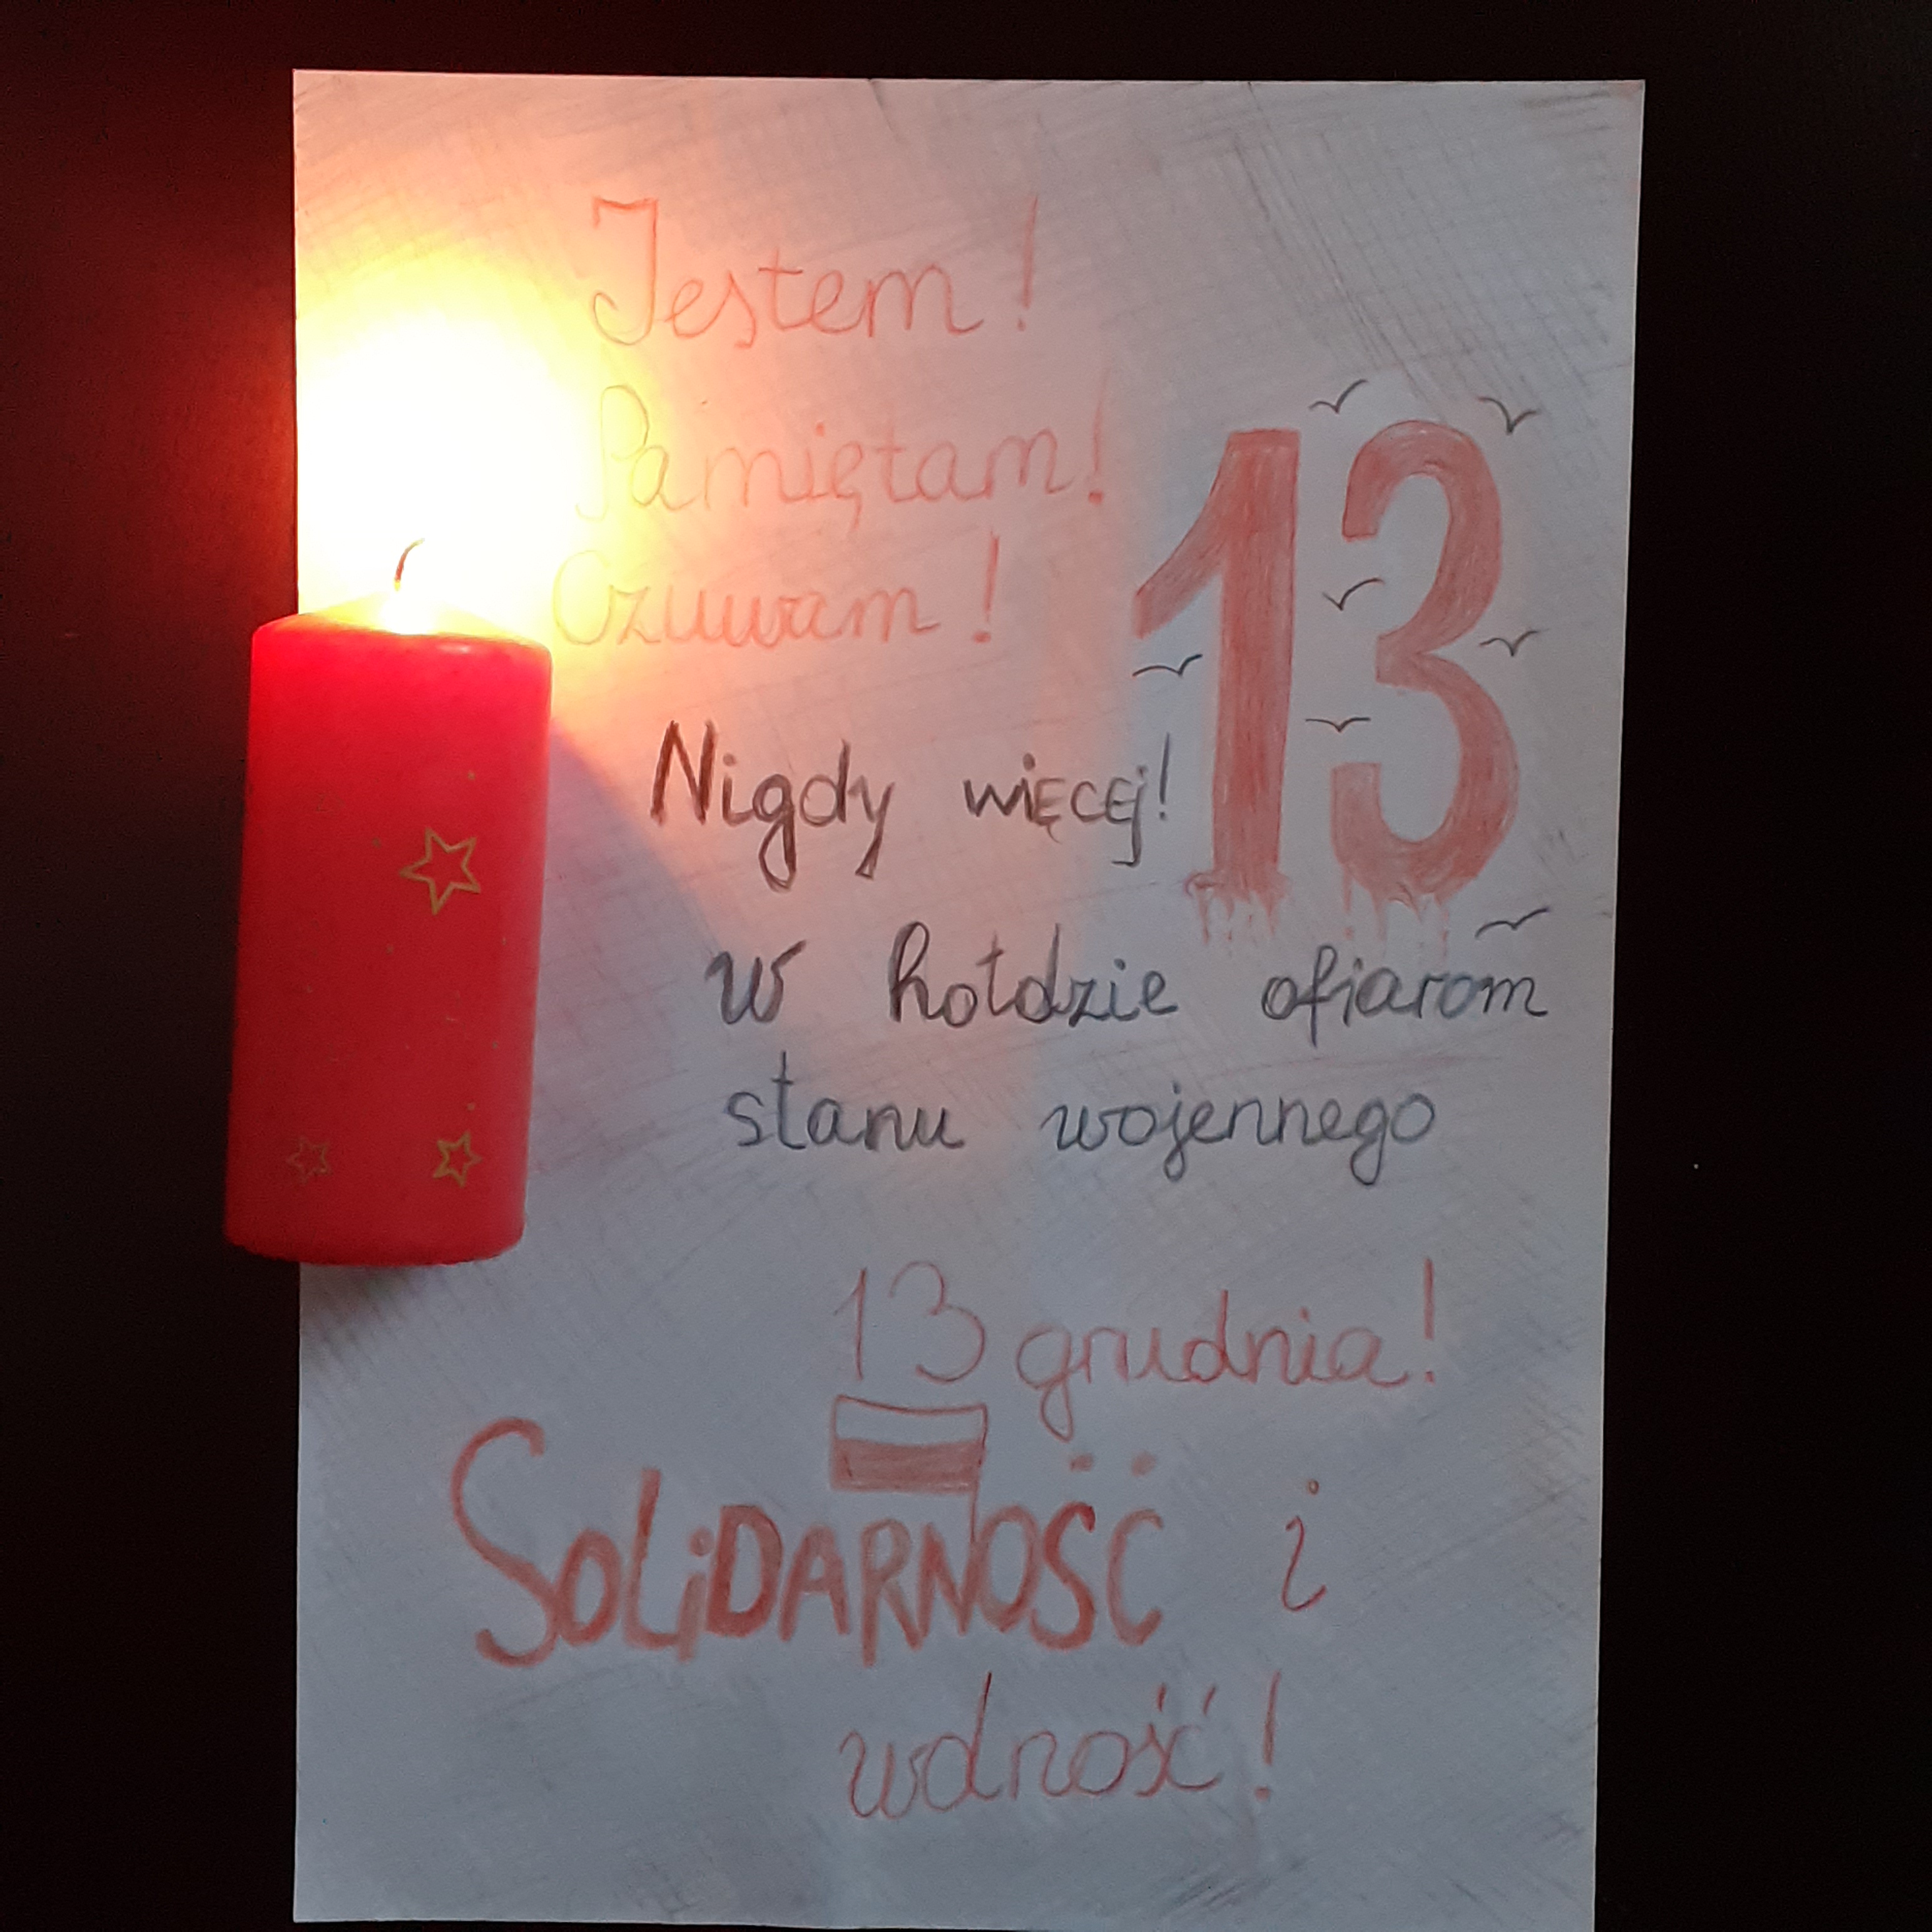 Jestem!
Pamiętam!
Czuwam!
13
Nigdy więcej!
w hołdzie ofiarom
stanu wojennego
13 grudnia!
SOLiDARNOŚĆ i
wdność!